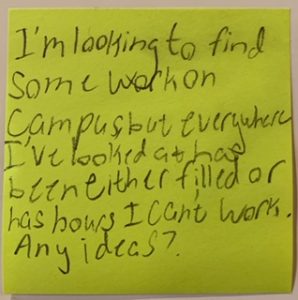 I'm looking to find
some work on
campus, but everywhere
I've looked at has
been either filled or
has hours I cant work.
Any ideas?